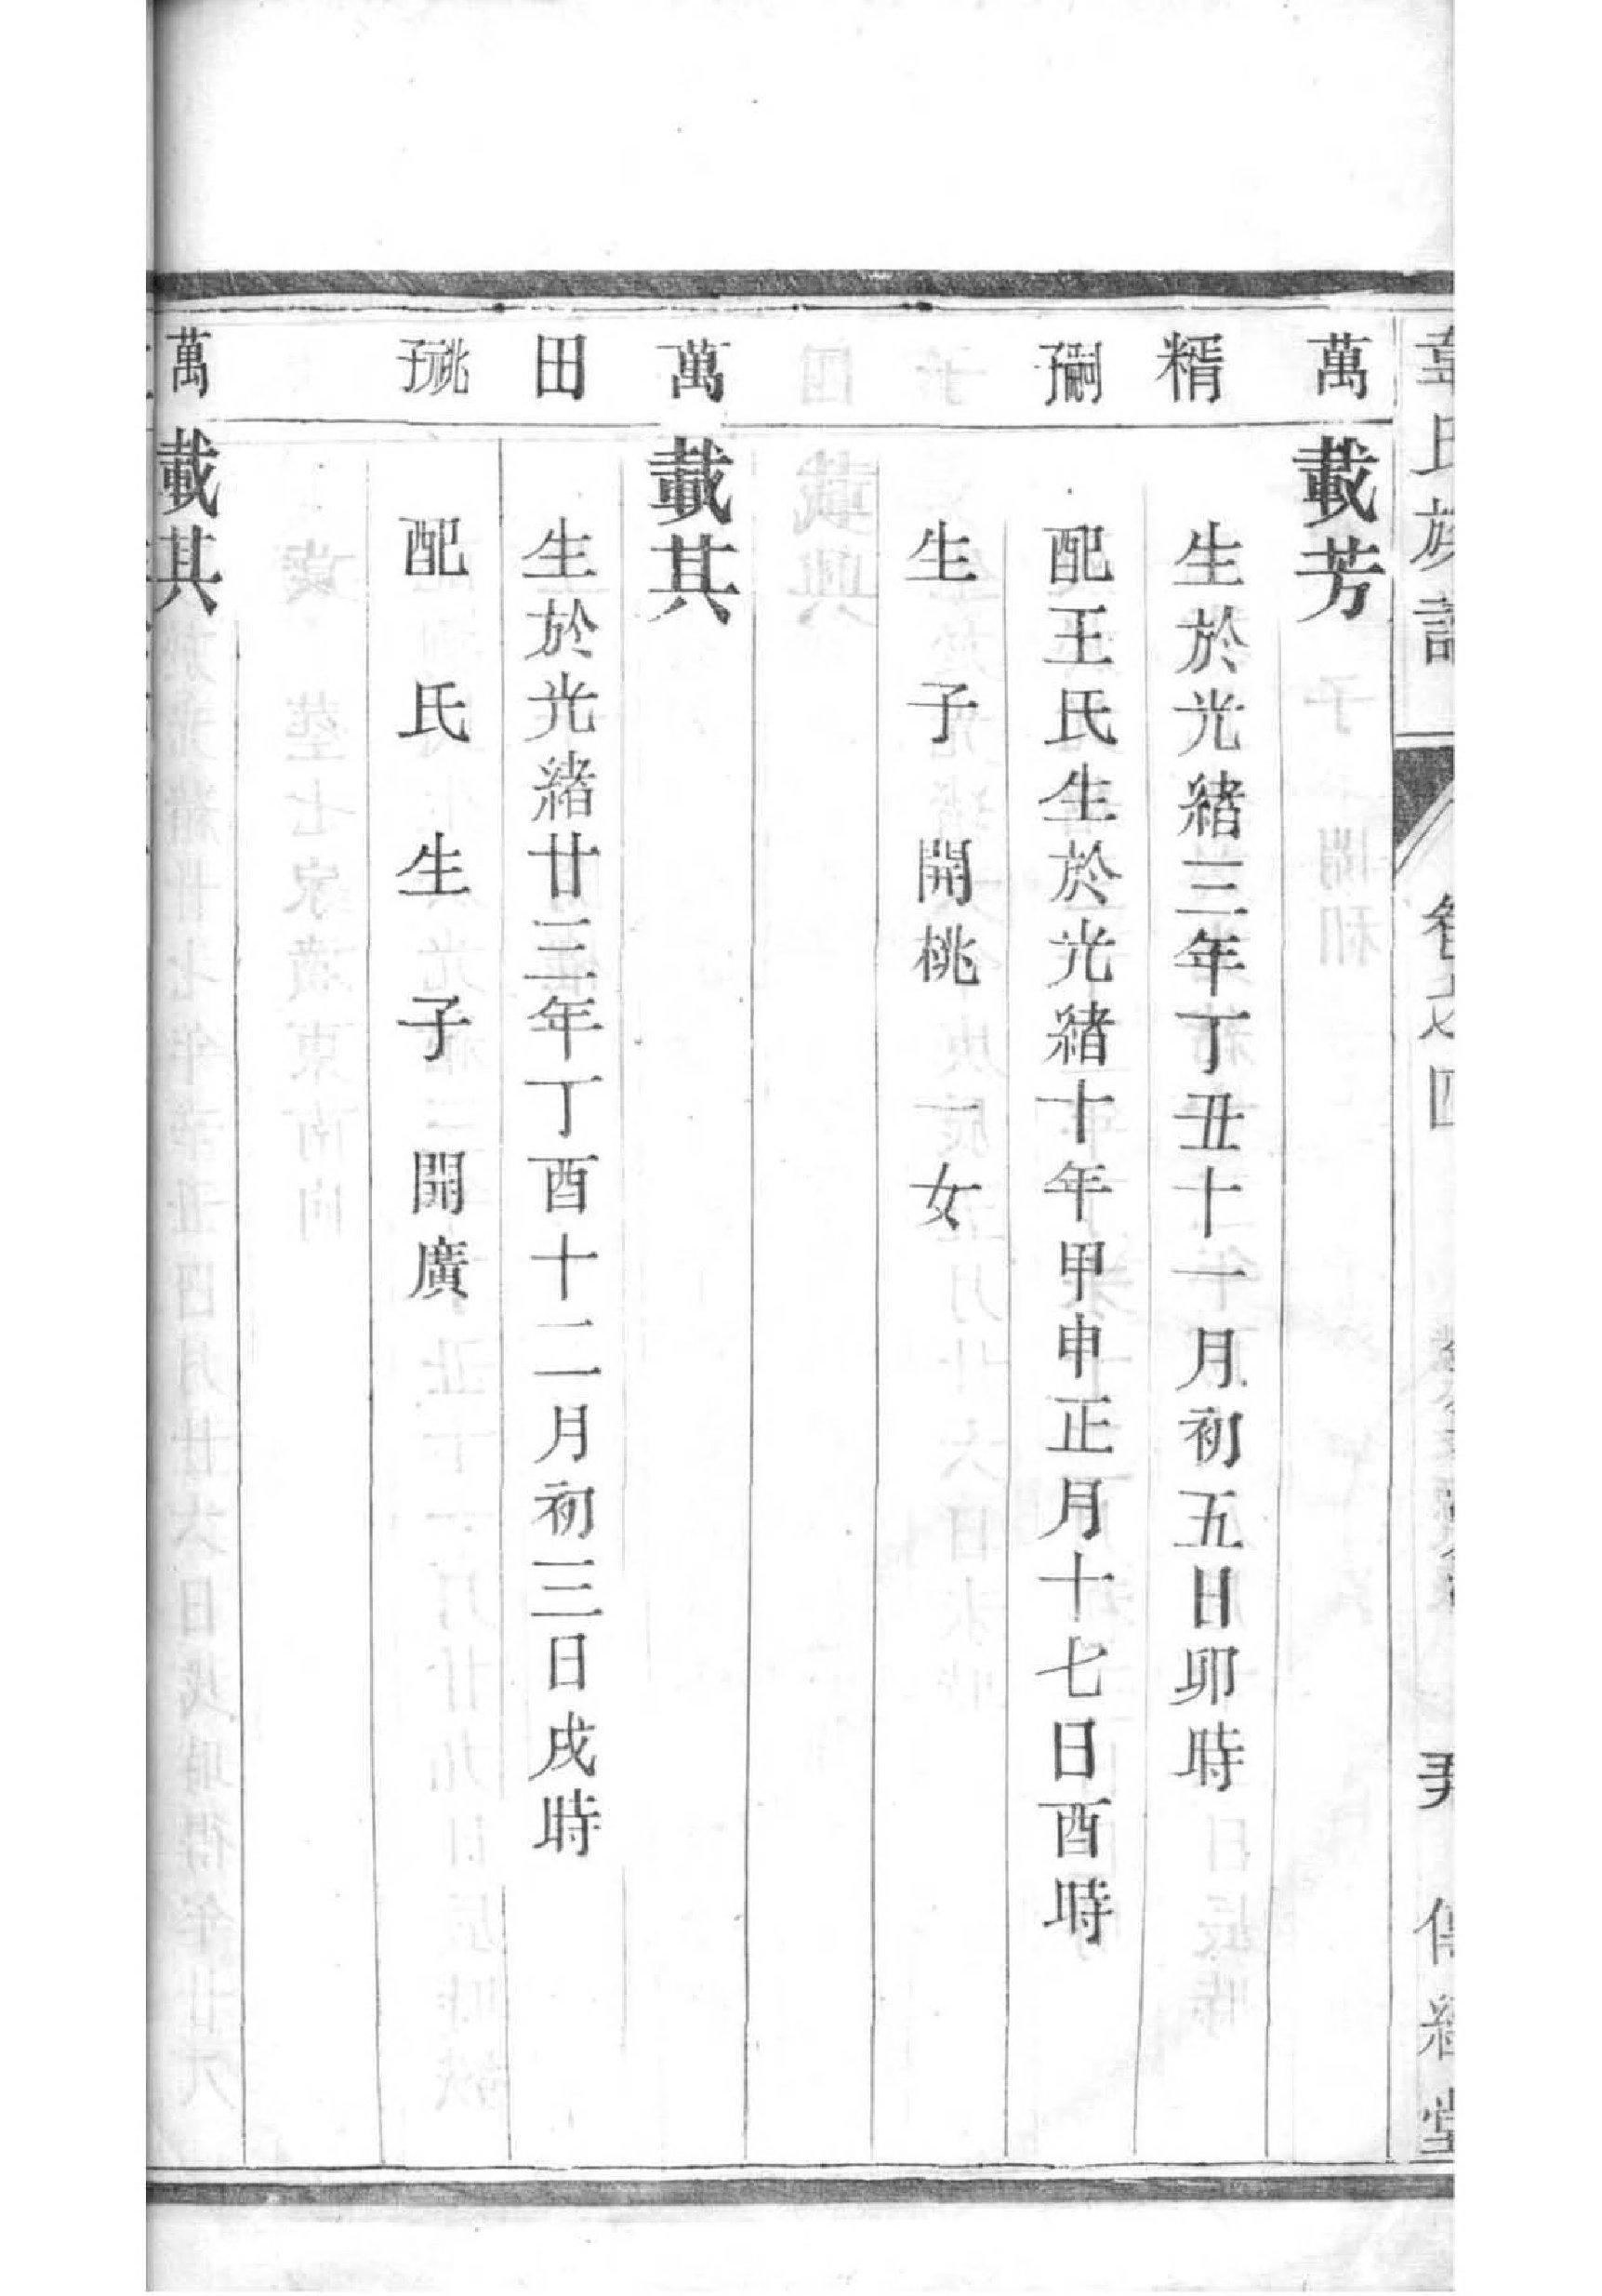 氏族譜 卷之四 堂
萬 載芳
糈 生於光緒三年丁丑十一月初五日卯時
嗣子 配王氏生於光緒十年甲申正月十七日酉時
生子開桃一女
萬 載其
田 生於光緒廿三年丁酉十二月初三日戌時
祧子 配氏生子開廣
萬 載其